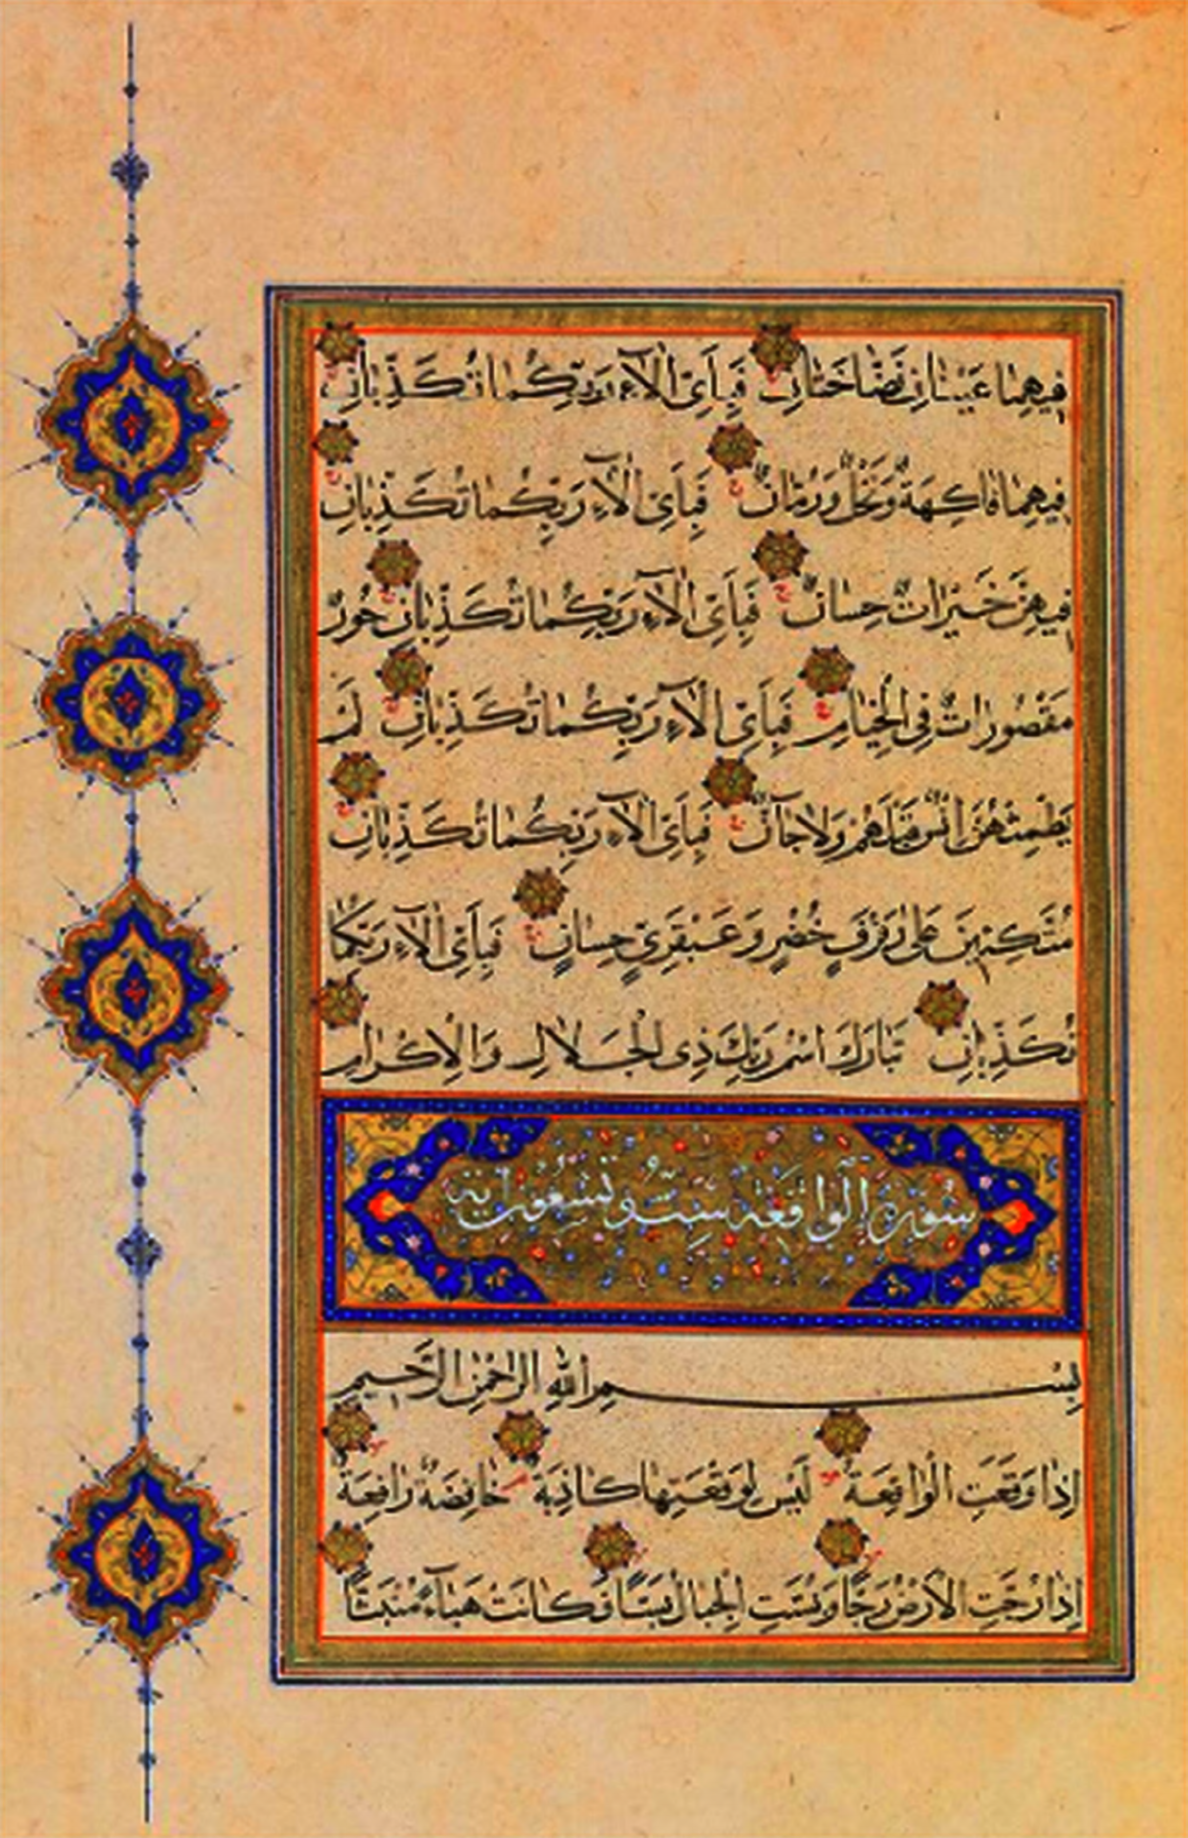 فِيهِمَا عَيْنَانِ نَضَّاخَتَانِ فَبِأَيِّ اٰلَآءِ رَبِّكُمَا تُكَذِّبَانِ
فِيهِمَا فَاكِهَةٌ وَنَخْلٌ وَرُمَّانٌ فَبِأَيِّ اٰلَآءِ رَبِّكُمَا تُكَذِّبَانِ
فِيهِنَّ خَيْرَاتٌ حِسَانٌ فَبِأَيِّ اٰلَآءِ رَبِّكُمَا تُكَذِّبَانِ حُورٌ
مَقْصُورَاتٌ فِي الْخِيَامِ فَبِأَيِّ اٰلَآءِ رَبِّكُمَا تُكَذِّبَانِ لَمْ
يَطْمِثْهُنَّ اِنْسٌ قَبْلَهُمْ وَلَا جَآنٌّ فَبِأَيِّ اٰلَآءِ رَبِّكُمَا تُكَذِّبَانِ
مُتَّكِئِينَ عَلٰى رَفْرَفٍ خُضْرٍ وَعَبْقَرِيٍّ حِسَانٍ فَبِأَيِّ اٰلَآءِ رَبِّكُمَا
تُكَذِّبَانِ تَبَارَكَ اسْمُ رَبِّكَ ذِي الْجَلَالِ وَالْاِكْرَامِ
سُورَةُ الْوَاقِعَةِ سِتٌّ وَتِسْعُونَ اٰيَة
بِسْمِ اللّٰهِ الرَّحْمٰنِ الرَّحِيمِ
اِذَا وَقَعَتِ الْوَاقِعَةُ لَيْسَ لِوَقْعَتِهَا كَاذِبَةٌ خَافِضَةٌ رَافِعَةٌ
اِذَا رُجَّتِ الْاَرْضُ رَجًّا وَبُسَّتِ الْجِبَالُ بَسًّا فَكَانَتْ هَبَآءً مُنْبَثًّا